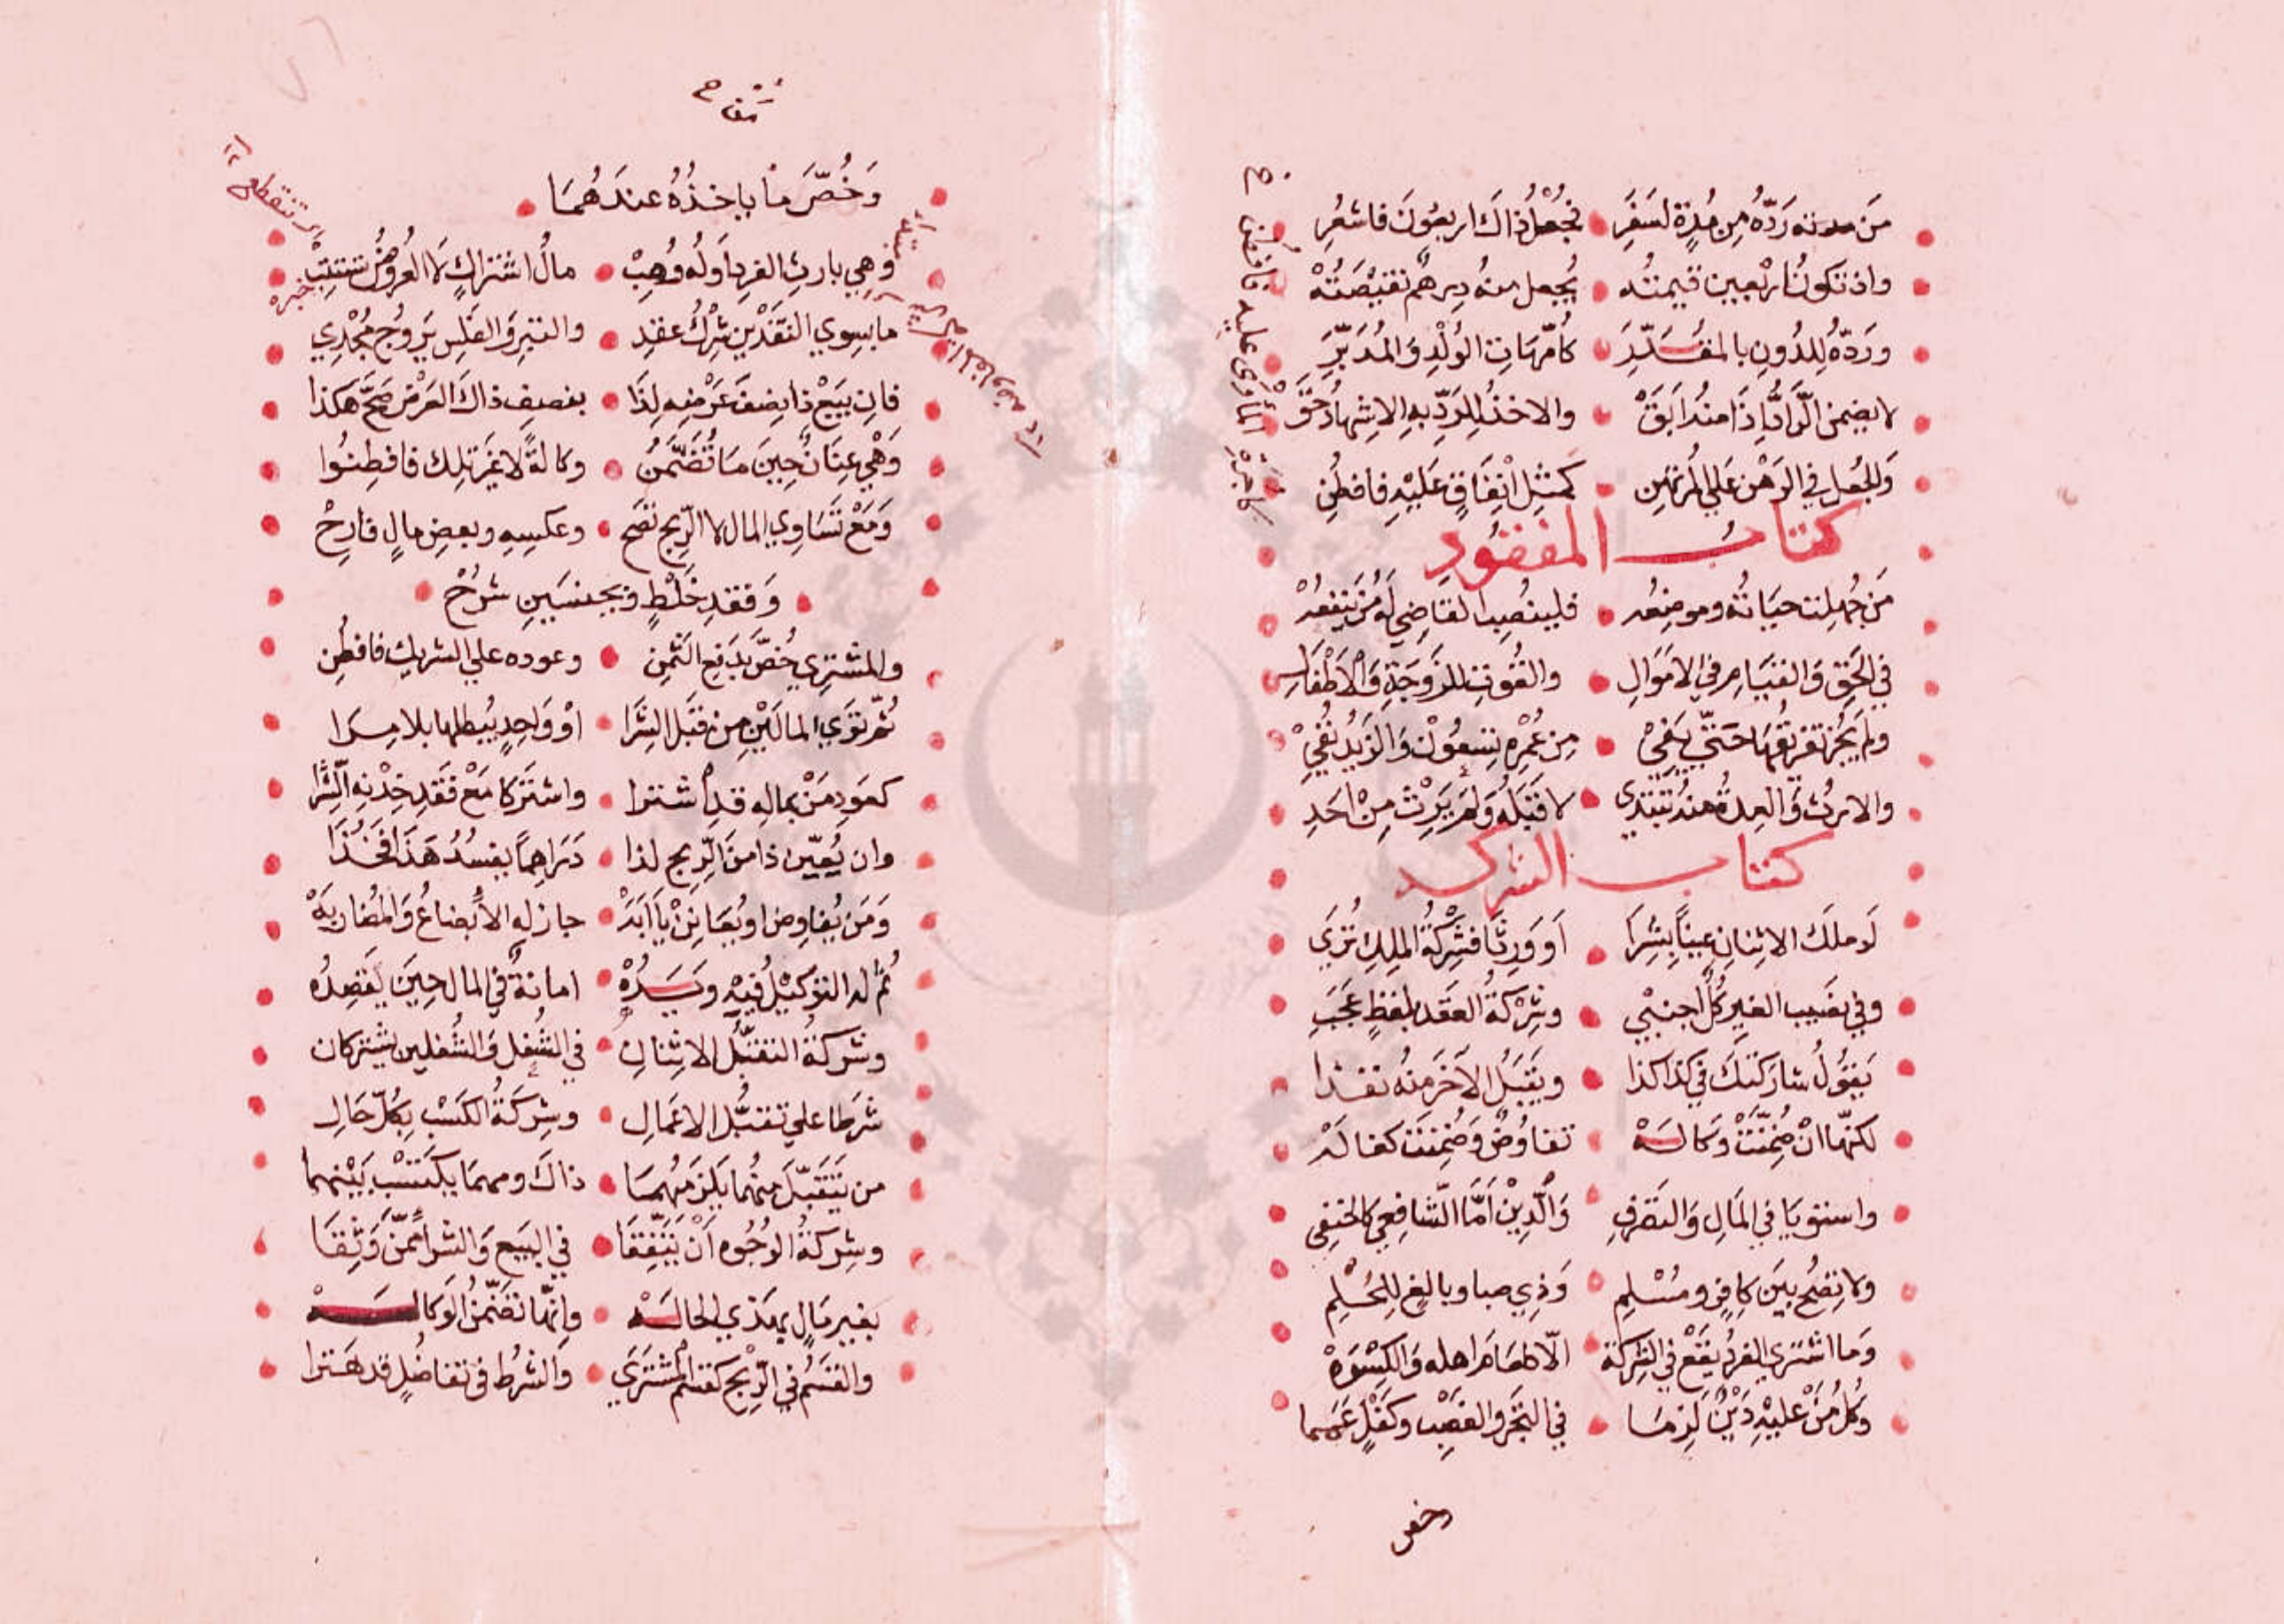 مَن مدته رَدّهُ مِن مُدةٍ لسَفَرِ فجُعْلُ ذاكَ اربعُونَ فاشعُرِ
واذ تكونُ اربعين قيمتُه يُجعل منهُ دِرهمٌ نقيْصَتُهْ
ورَدّهُ لِلدُونِ بالمقُدّرِ كأمّهَاتِ الوُلْدِ وَالمُدَبّرِ
لا يضمن الرّادُّ اِذَا منهُ ابَقَ والاخذُ لِلرَدِّ بهِ الاِشهادُ حَقّ
وَالجُعل في الرَهْن عَلى المُرتهِنِ كمِثلِ انْفَاقٍ عَليْهِ فافطُنِ
كتاب المفقُودِ
مَن جُهلت حيَاتُه وموضِعُه فلينصُبِ القاضِي لهُ مَن يَنفعُهْ
في الحَقِّ وَالقيَامِ في الامَوَالِ والقُوتِ للزَوجَةِ وَالأطفَالِ
ولم يَجُز تفريقُهَا حَتّى يَفيْ مِن عُمْرِهِ تِسعُوْن وَالزَيدُ نُفيْ
والارثُ وَالعِدةُ منهُ تَبتدِي لا قَبَلَهُ وَلم يَرِثْ مِنْ احَدِ
كتاب الشركه
لَو ملَكَ الاثنانِ عيناً بِشِرَا اَو وَرِثَا فشِرْكةُ المِلكِ تُرَى
وفي نصَيب الغيرِ كُلٌ اجنبي وشِرْكةُ العَقدِ بلفظٍ عَجَبِ
يَقوُلُ شارَكتكَ في كذا كذا ويَقبَلُ الآخَر منهُ نفذا
لكنّها انْ ضُمِّنَتْ وَكالَهْ تفاوُضٌ وَضُمِّنَت كفالَهْ
واستوَيَا في المَالِ وَالتصَرفِ وَالدِيْنِ اَمّا الشّافِعِي كالحَنَفي
ولا تصِحُ بيَن كافرٍ ومُسْلِمِ وَذِي صبا وبالغٍ لِلحُلُمِ
وَما اشترى الفردُ يقَعْ في الشِركَة الاّ طعَامَ اهله وَالكِسْوَهْ
وكُلُ مَنْ عليْهِ دَيْنٌ لَزِمَا في التَجْرِ والغصْبِ وكَفلٍ عَمّما
كاجرة المأوى عليه فافطن
وخص
وَخُصّ مَا ياخذُهُ عندَهُمَا
وَهي بارثِ الفردِ اَولَهُ وُهِبْ مالُ اشتراكٍ لا العُروضُ
ما بِسِوي النَقَدْينِ شِرْكُ عقدِ والتبرِ وَالفَلسِ يَروُج مُجْدِي
فان يَبيْع ذا نِصفَ عَرْضِه لِذَا بنصفِ ذاكَ العَرْض صَحّ هكذا
وَهْي عِنَانٌ حِينَ مَا تُضَّمَنُ وكالةً لا غَيرَ تلِك فافطِنُوا
وَمَعْ تَسَاوِي المال لا الرِّبحِ تصَح وعكسِهِ وبعضِ مالٍ فارِحْ
وَفقدِ خَلْطٍ وبجنسَينِ شرُحْ
والمشترِي خُصَّ بدَفعِ الثَمِن وعوده علي الشريك فافطُنِ
ثُمّ توَي المالَيْنِ مِن قَبَل الشِّرَا اوْ وَاحِدٍ يُبطلها بلا مِرَا
كعَودِ مَنْ بمالِه قدِ اشترا واشتَرَكا مَعْ فَقَدِ خِدْنِه الشِّرا
وان يُعيّن ذا مِنَ الرِّبح لذا دَرَاهِماً يفسُدُ هَذَا فَخُذَا
وَمَن يُفاوِض او يُعَانِنْ جاز له الأبضاعُ وَالمُضَاربَهْ
ثُمّ لهُ التوكيْلُ فيْهِ ويَدُهْ امانةٌ في المال حِينَ يَقصِدُه
وشركةُ التقبُّلِ الاثنانِ في الشُغلِ وَالشُغلين يشتركانِ
شرَطا على تقبُّل الاعَمالِ وشِركَةُ الكَسْبِ بِكُلّ حَالِ
من يَتَقَبّلْ منهُما يلزَمهُمَا ذاكَ ومهما يكتَسْب بَيْنهما
وشِركَةُ الوُجُوه اَنْ يَتّفِقَا في البَيع وَالشرا ممَّن وَثِقَا
بغير مَالٍ بهَذي الحَالَهْ وانّها تضَمَّن الوَكالَهْ
والقَسَمُ في الرّبح كقَسْمِ المُشترَي وَالشَرْط في تفاضُلٍ قد هَترا